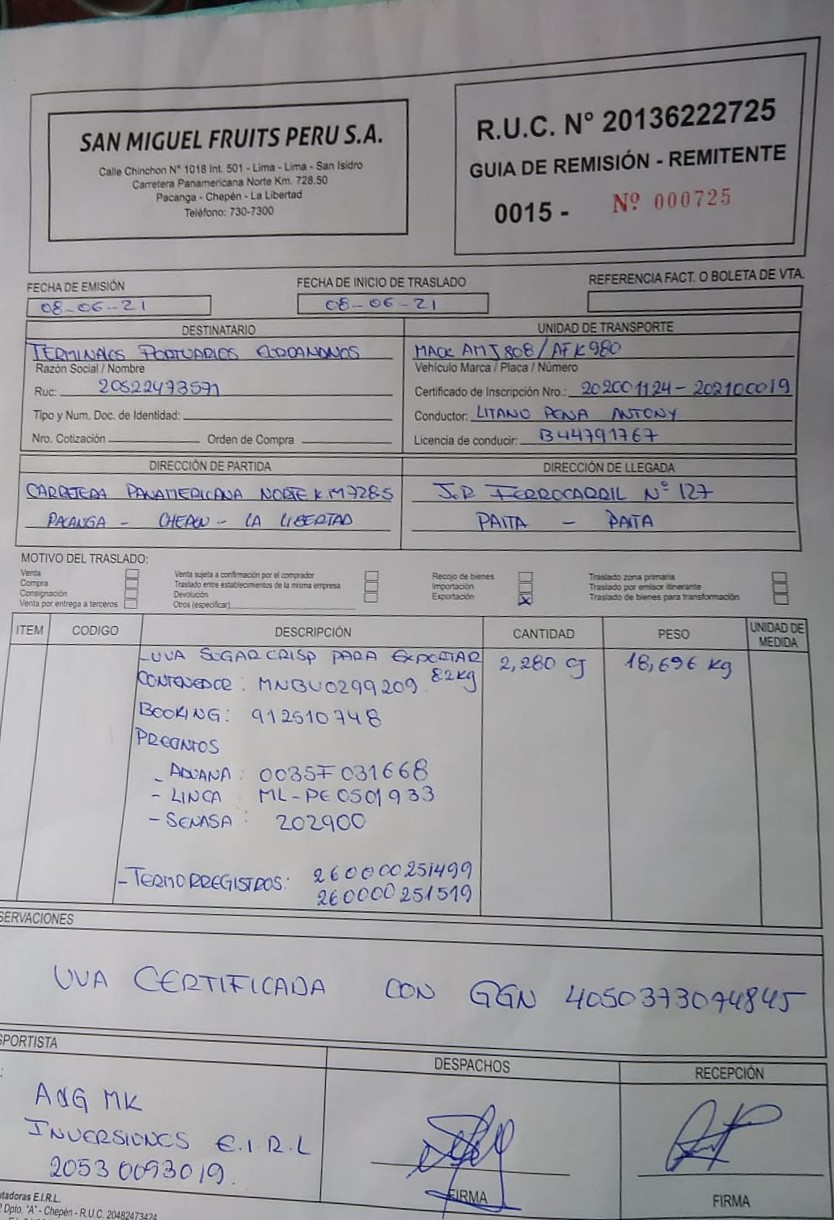 SAN MIGUEL FRUITS PERU S.A.
Calle Chinchon N° 1018 Int. 501 - Lima - Lima - San Isidro
Carretera Panamericana Norte Km. 728.50
Pacanga - Chepén - La Libertad
Teléfono: 730-7300
R.U.C. N° 20136222725
GUIA DE REMISIÓN - REMITENTE
0015 - Nº 000725
FECHA DE EMISIÓN
08-06-21
FECHA DE INICIO DE TRASLADO
08-06-21
REFERENCIA FACT. O BOLETA DE VTA.
DESTINATARIO
TERMINALES PORTUARIOS EUROANDINOS
Razón Social / Nombre
Ruc: 20522473571
Tipo y Num. Doc. de Identidad:
Nro. Cotización Orden de Compra
UNIDAD DE TRANSPORTE
MACK AMJ808/AFK980
Vehículo Marca / Placa / Número
Certificado de Inscripción Nro.: 202001124-202100019
Conductor: LITANO PENA ANTONY
Licencia de conducir: B44791767
DIRECCIÓN DE PARTIDA
CARRETERA PANAMERICANA NORTE KM7285
PACANGA - CHEPEN - LA LIBERTAD
DIRECCIÓN DE LLEGADA
J.R FERROCARRIL N° 127
PAITA - PAITA
MOTIVO DEL TRASLADO:
Venta
Compra
Consignación
Venta por entrega a terceros
Venta sujeta a confirmación por el comprador
Traslado entre establecimientos de la misma empresa
Devolución
Otros (especificar)
Recojo de bienes
Importación
Exportación X
Traslado zona primaria
Traslado por emisor itinerante
Traslado de bienes para transformación
ITEM CODIGO DESCRIPCIÓN CANTIDAD PESO UNIDAD DE MEDIDA
-UVA SUGARCRISP PARA EXPORTAR 2,280 CJ 18,696 Kg
8.2kg
CONTENEDOR: MNBU0299209
BOOKING: 912510748
PRECINTOS
- ADUANA: 0035F031668
- LINEA: ML-PE0501933
- SENASA: 202900
-TERMORREGISTROS: 260000251499
260000251519
SERVACIONES
UVA CERTIFICADA CON GGN 4050373074845
SPORTISTA
A&G MK
INVERSIONES E.I.R.L
20530093019.
DESPACHOS
FIRMA
RECEPCIÓN
FIRMA
tadoras E.I.R.L.
Dpto. "A" - Chepén - R.U.C. 20482473424